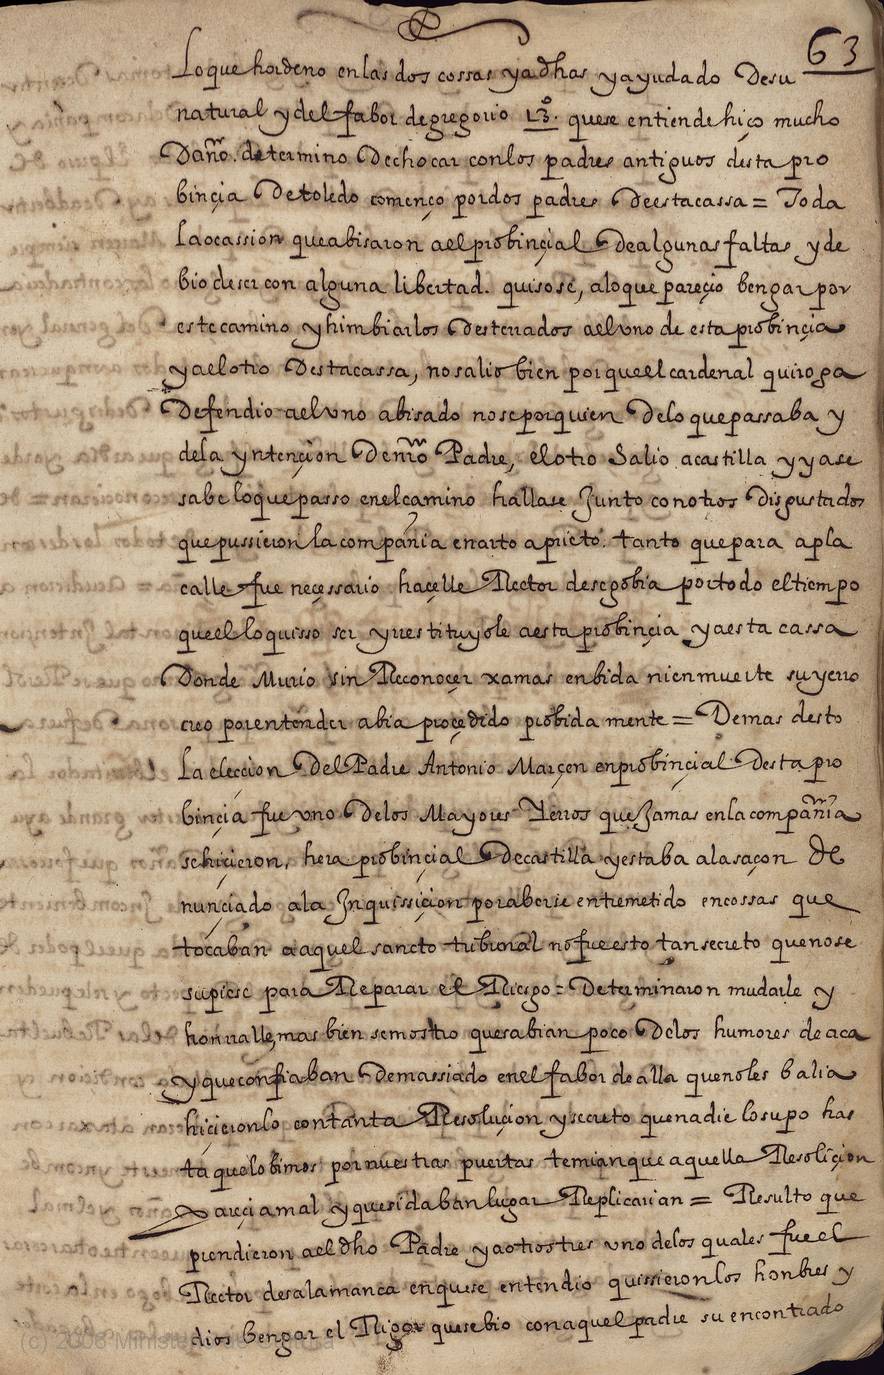 63
Lo que hordeno en las dos cossas ya dhas y ayudado de su
natural y del fabor de gregorio 13º. que se entiende hiço mucho
Daño. determino De chocar con los padres antiguos desta pro
binçia De toledo començo por dos padres De esta cassa = Toda
La ocassion que abisaron a el probinçial De algunas faltas y de
bio de ser con alguna libertad. quisose, a lo que pareçio bengar por
este camino y himbiarlos Desterrados a el vno de esta probinçia
y a el otro Desta cassa, no salio bien por que el cardenal quiroga
Defendio a el vno abisado no se por quien De lo que passaba y
de la yntençion De nrõ Padre, el otro Salio a castilla y ya se
sabe lo que passo en el camino hallase Junto con otros Disgustados
que pussieron la compañia en arto aprieto. tanto que para apla
calle fue neçessario haçelle Rector de segobia por todo el tiempo
que el lo quisso ser y restituyole a esta probinçia y a esta cassa
Donde Murio sin Reconoçer xamas en bida ni en muerte su yerro
creo por entender abia proçedido probida mente = Demas desto
La eleccion Del Padre Antonio Marçen en probinçial Desta pro
binçia fue vno De los Mayores Yerros que Jamas en la compañia
se hiçieron, hera probinçial De castilla y estaba a la saçon De
nunçiado a la Inquissiçion por aberse entremetido en cossas que
tocaban a aquel sancto tribunal no fue esto tan secreto que no se
supiese para Reparar el Riesgo = Determinaron mudarle y
honrralle, mas bien se mostro que sabian poco De los humores de aca
y que confiaban Demassiado en el fabor de alla que no les balia
hiçieronlo con tanta Resoluçion y secreto que nadie lo supo has
ta que lo bimos por nuestras puertas temian que aquella Resoluçion
Pareçia mal y que si daban lugar Replicarian = Resulto que
prendieron a el dho Padre y a otros tres vno de los quales fue el
Rector de salamanca en que se entendio quissieron los honbres y
dios bengar el Rigor que se bio con aquel padre su encontrado
(c) 2006 Ministerio de Cultura